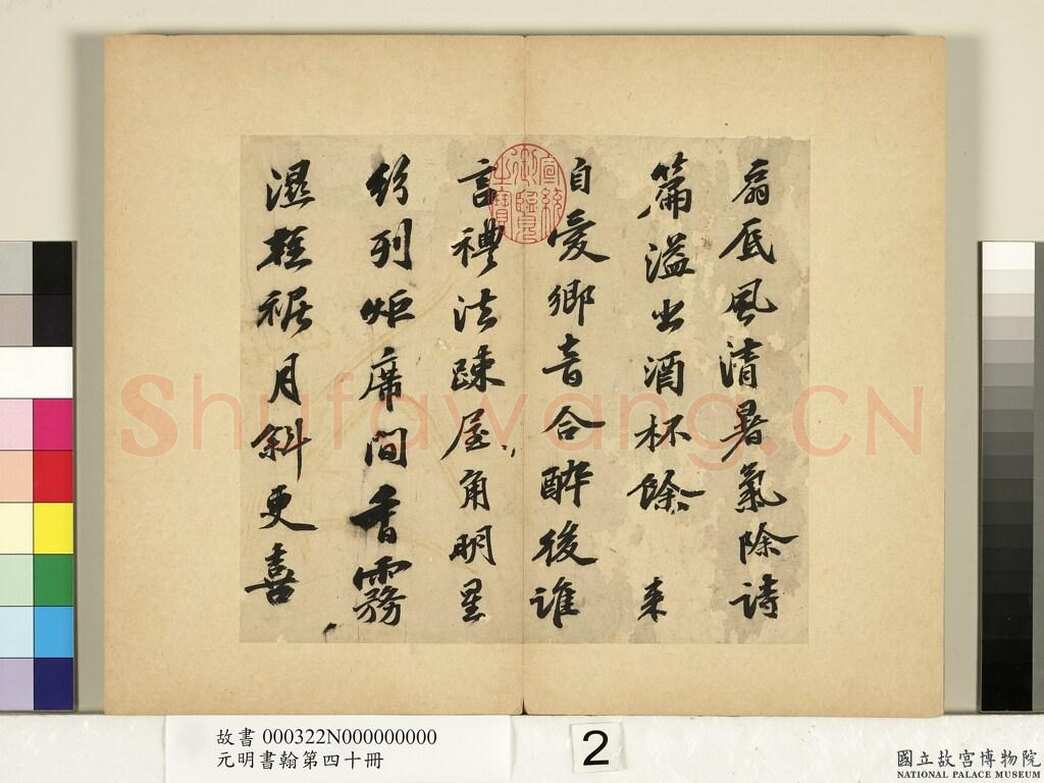 扇底風清暑氣除詩
篇溢出酒杯餘 来
自愛鄉音合醉後誰
言禮法疎屋角明星
紛列炬席間香霧
濕輕裾月斜更喜
宣統御覽之寶
Shufawang.CN
故書 000322N000000000
元明書翰第四十冊
2
國立故宮博物院
NATIONAL PALACE MUSEUM